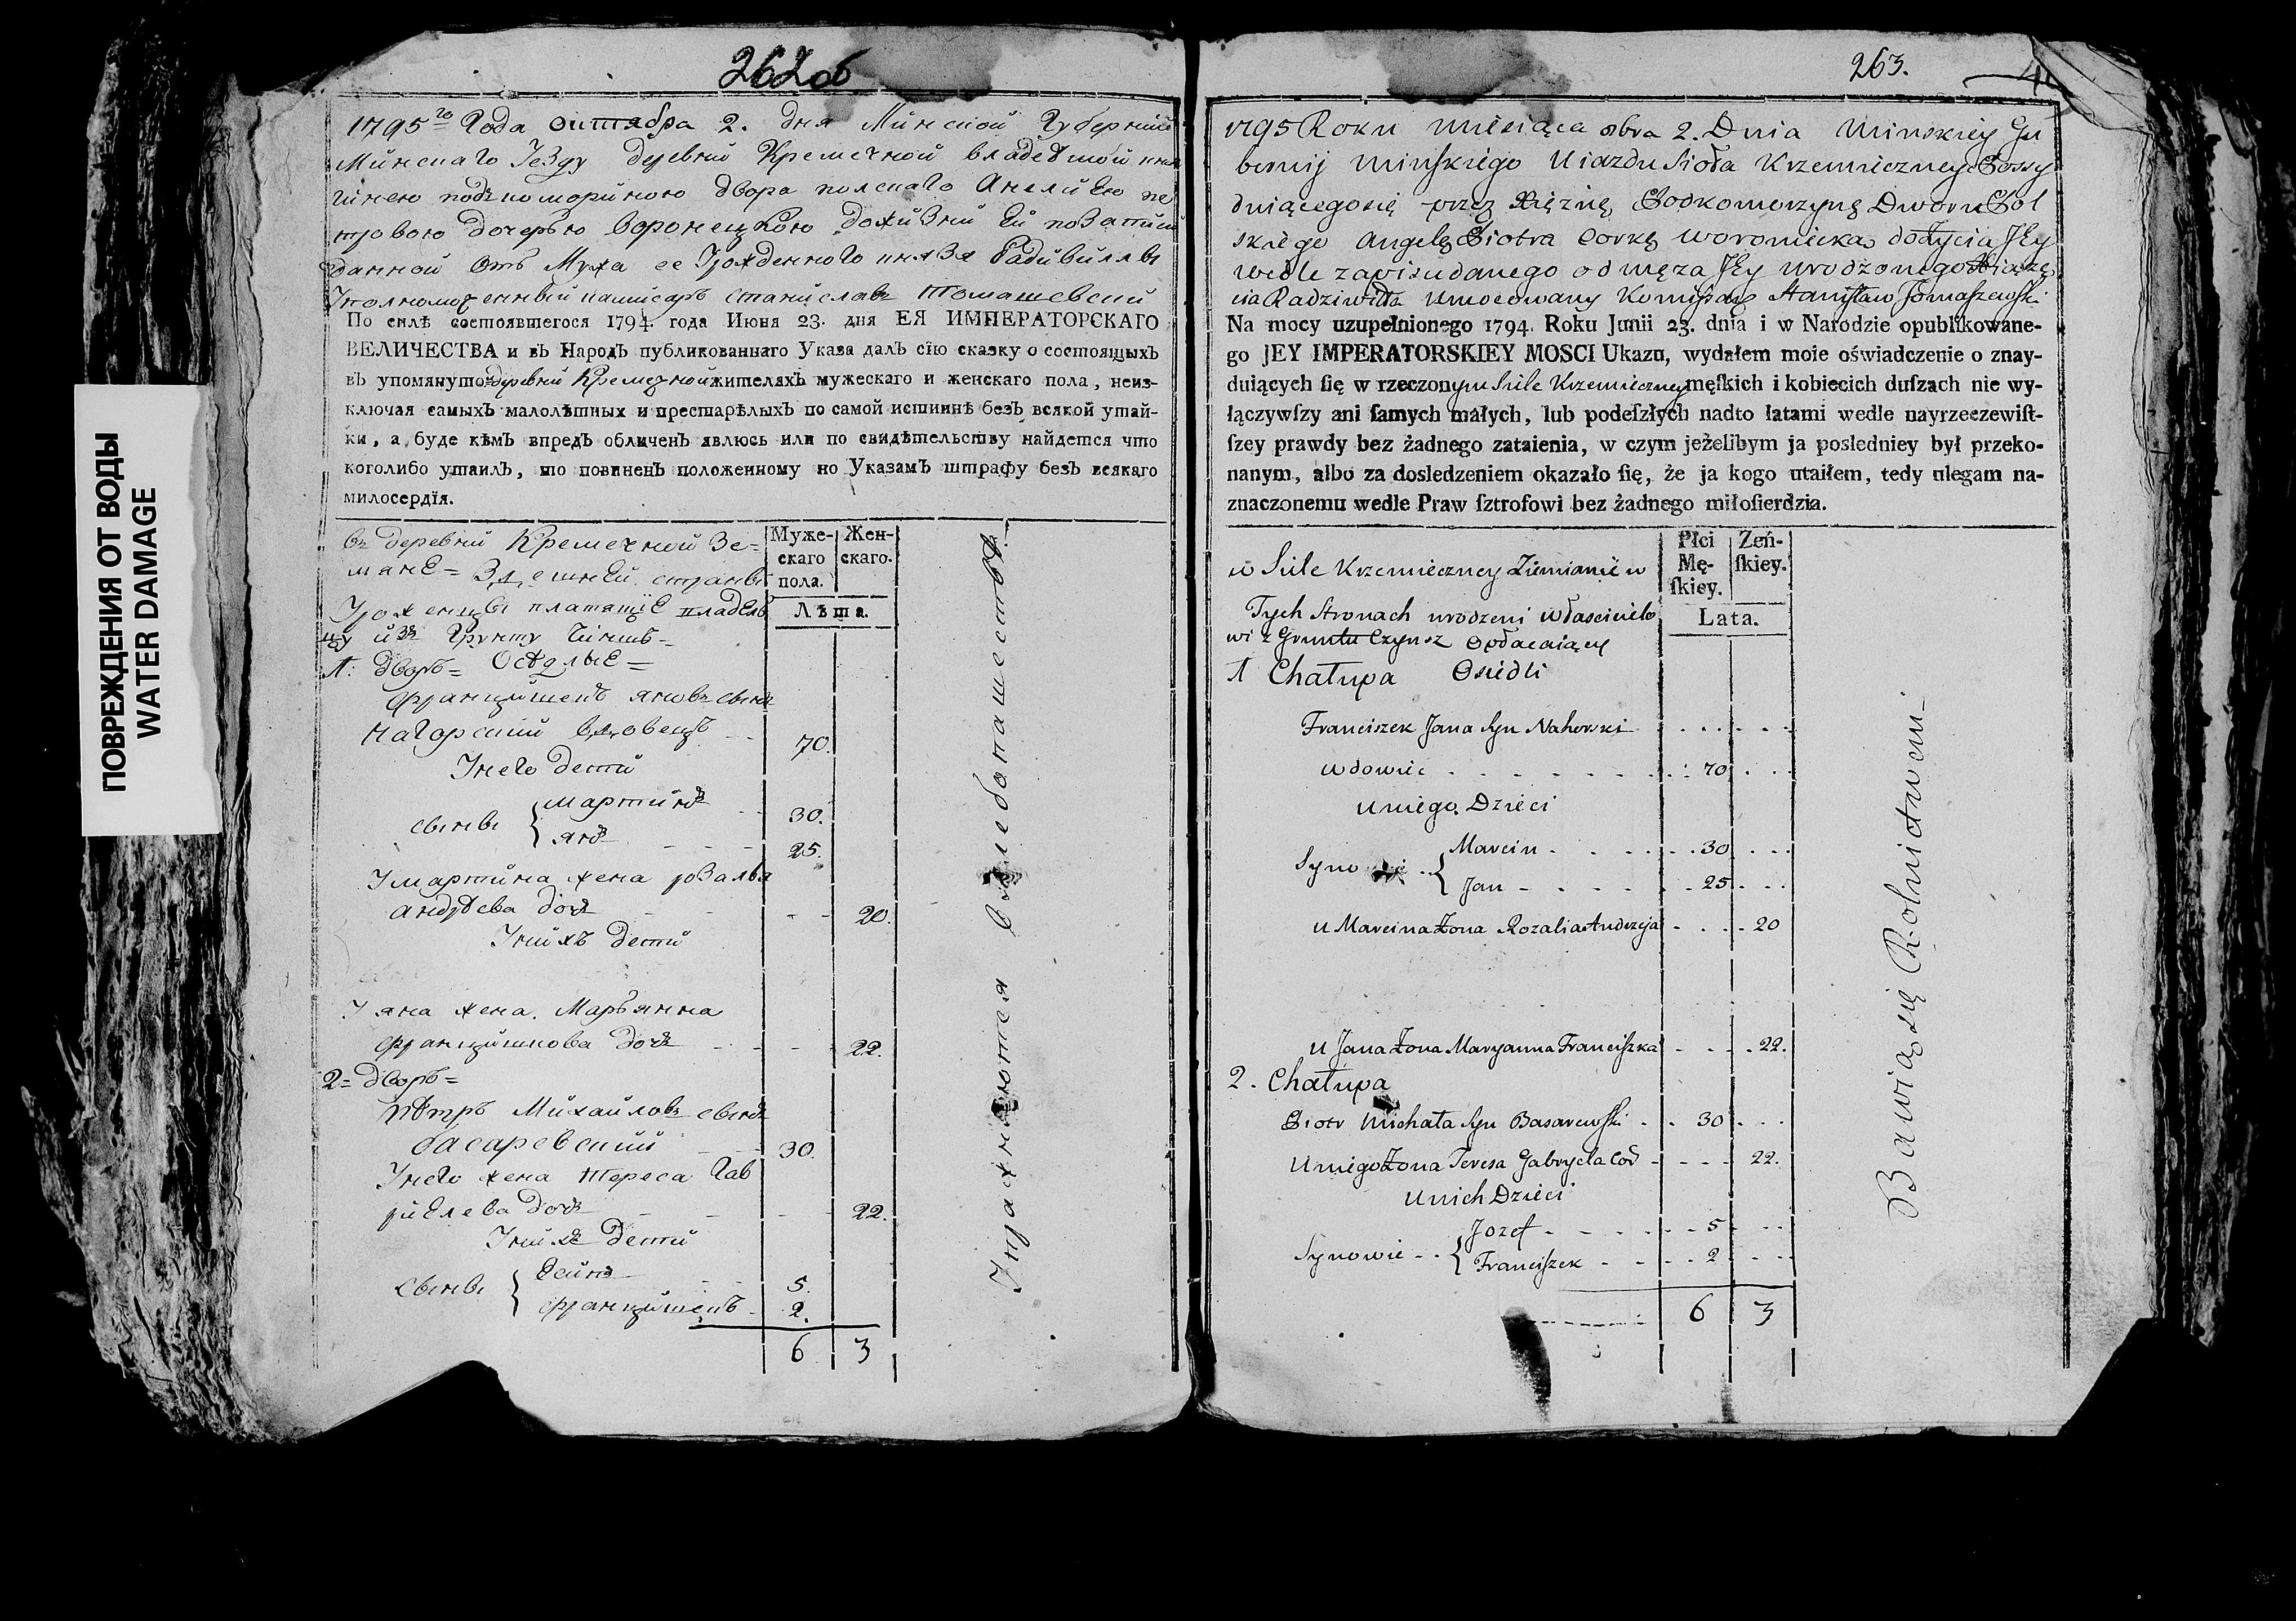 ПОВРЕЖДЕНИЯ ОТ ВОДЫ
WATER DAMAGE
262об
1795го Года октября 2. дня Минской Губернии
Минскаго Уезду деревни Кремечной владеемой кня
гинею подкоморыною двора полскаго Анелиею пе
тровою дочерью Воронецкою дожизни ей по записи
данной отъ Мужа ее Урожденного князя Радивилла
Уполномоченный камисаръ Станиславъ Томашевский
По силѣ состоявшегося 1794. года Июня 23. дня ЕЯ ИМПЕРАТОРСКАГО
ВЕЛИЧЕСТВА и въ Народъ публикованнаго Указа далъ сїю сказку о состоящыхъ
въ упомянутой деревни Кремечной жителяхъ мужескаго и женскаго пола, неиз-
ключая самыхъ малолѣтныхъ и престарѣлыхъ по самой истиннѣ безъ всякой утай-
ки, а буде кѣмъ впредь обличенъ явлюсь или по свидѣтельству найдется что
коголибо утаилъ, то повиненъ положенному по Указамъ штрафу безъ всякаго
милосердїя.
Муже-
скаго
пола.
Жен-
скаго.
Лѣта.
въ деревни Кремечной Зе=
мяне= Здешней страны
Уроженцы платящие владель
цу изъ Грунту Чиншъ-
1: дворъ= Оседлые=
Францишекъ яновъ сынъ
Нагорский вдовецъ 70.
Унего дети
сыны { мартинъ 30.
янъ 25.
Умартина жена розалья
андреева дочь 20.
Унихъ дети
Уяна жена Марьянна
Францишкова дочь 22.
2= дворъ=
Петръ Михайловъ сынъ
басаревский 30.
Унего жена тереса Гав
риелева дочь 22.
Унихъ дети
сыны { Осипъ 5.
Францишекъ 2.
6 3
Упражняются хлебопашествомъ.
263.
1795 Roku miesiąca 8bra 2. Dnia Minskiey Gu
bernij Minskiego Uiazdu Sioła Krzemieczney Possy
duiącegosię przez Xiężnę Podkomorzynę Dworu Pol
skiego Angelę Piotra Corkę Woroniecką dożycia Jey
wedle zapisu danego od męza Jey urodzonego Xiążę
cia Radziwiłła Umocowany Komisarz Stanisław Tomaszewski
Na mocy uzupełnionego 1794. Roku Junii 23. dnia i w Narodzie opublikowane-
go JEY IMPERATORSKIEY MOSCI Ukazu, wydałem moie oświadczenie o znay-
duiących ſię w rzeczonym Siele Krzemieczney męſkich i kobiecich duſzach nie wy-
łączywſzy ani ſamych małych, lub podeſzłych nadto latami wedle nayrzeczewiſt-
ſzey prawdy bez żadnego zataienia, w czym jeżelibym ja posledniey był przeko-
nanym, albo za dosledzeniem okazało ſię, że ja kogo utaiłem, tedy ulegam na-
znaczonemu wedle Praw ſztrofowi bez żadnego miłoſierdzia.
Płci
Mę-
ſkiey.
Zeń-
ſkiey.
Lata.
w Siele Krzemieczney Ziemianie w
Tych Stronach urodzeni Właścicielo
wi z Gruntu Czynsz Opłacaiący
1 Chałupa Osiedli
Franciszek Jana Syn Nahorski
wdowiec 70
u niego Dzieci
Synowie { Marcin 30
Jan 25
u Marcina Żona Rozalia Andrzeja 20
u Jana Żona Maryanna Franciszka 22.
2. Chałupa
Piotr Michała Syn Basarewski 30
u niego Żona Teresa Gabryela Cor 22.
u nich Dzieci
Synowie { Jozef 5
Franciszek 2
6 3
Bawią się Rolnictwem